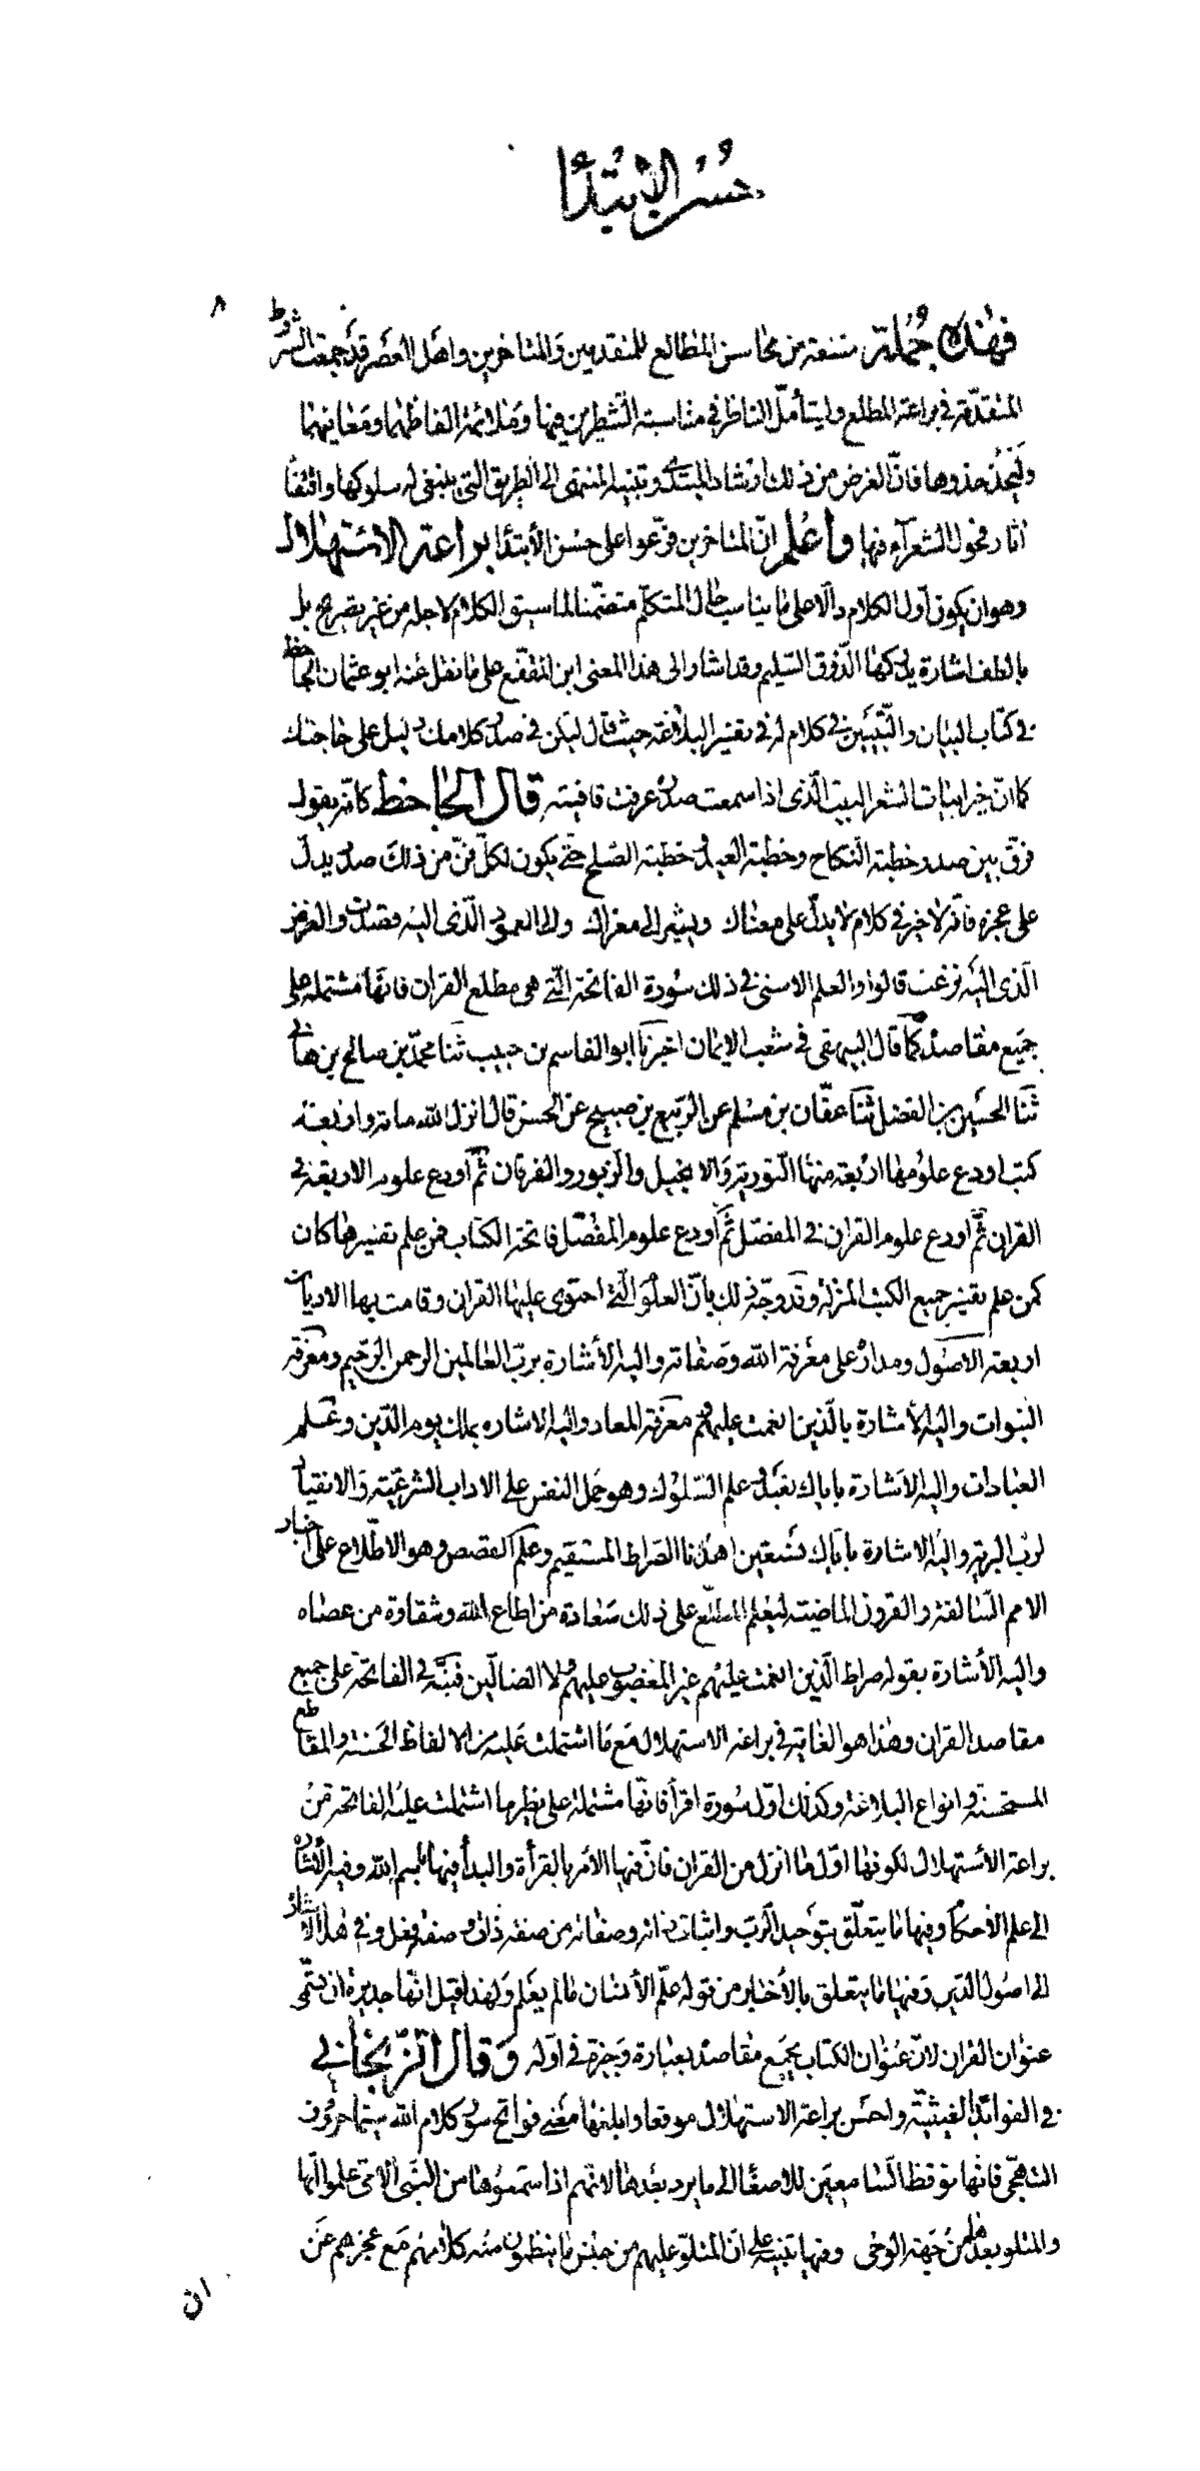 حُسْنُ الأبتدأ
٨
فهٰذه جُملة متنعة من محاسن المطالع للمتقدمين والمتاخرين واهل العصر قد جمعت الشروط
المتقدّمة في براعة المطلع وليتأمّل الناظر في مناسبة الشطرين فيها وملائمة الفاظهما ومعانيهما
وليحذ حذوها فانّ الغرض من ذلك ارشاد المبتدى وتنبيه المنتهى الى الطريق التي ينبغي له سلوكها واقتفا
اثار فحول الشعرآء فيها واعلم انّ المتاخرين فرّعوا على حسن الأبتدأ براعة الاستهلال
وهو ان يكون اول الكلام دالا على ما يناسب حال المتكلم متضمنا لما سيق الكلام لاجله من غير تصريح بل
بالطف اشارة يدركها الذّوق السّليم وقد اشار الى هذا المعنى ابن المقفع على ما نقل عنه ابو عثمان الجاحظ
في كتاب البيان والتّبيين في كلام له في تفسير البلاغة حيث قال ليكن في صدر كلامك دليل على حاجتك
كما انّ خير ابيات الشعر البيت الّذى اذا سمعت صدره عرفت قافيته قال الجاحظ كانّه يقول
فرّق بين صدر خطبة النكاح وخطبة العيد وخطبة الصّلح حتى يكون لكلّ فنّ من ذلك صدر يدلّ
على عجزه فانّه لا خير في كلام لا يدلّ على معناك ويشير الى مغزاك والى العمود الّذى اليه قصدت والغرض
الّذى اليه نزعت قالوا والعلم الاسنى في ذلك سُورة الفاتحة الّتي هي مطلع القران فانّها مشتملة على
جميع مقاصده كما قال البيهقي في شعب الايمان اخبرنا ابو القاسم بن حبيب ثنا محمّد بن صالح بن هانى
ثنا الحسين بن الفضل ثنا عفّان بن مسلم عن الربيع بن صبيح عن الحسن قال انزل الله مائة واربعة
كتب اودع علومها اربعة منها التورية والانجيل والزبور والفرقان ثمّ اودع علوم الاربعة في
القران ثمّ اودع علوم القران في المفصّل ثمّ اودع علوم المفصّل فاتحة الكتاب فمن علم تفسيرها كان
كمن علم تفسير جميع الكتب المنزلة وقد وجّه ذلك بانّ العلوم الّتي احتوى عليها القران وقامت بها الاديان
اربعة الاصول ومداره على معرفة الله وصفاته واليه الأشارة بربّ العالمين الرحمن الرّحيم ومعرفة
النبوات واليه الأشارة بالّذين انعمت عليهم ومعرفة المعاد واليه الاشاره بملك يوم الدّين وعلم
العبادات واليه الاشارة باياك نعبد وعلم السّلوك وهو حمل النفس على الاداب الشرعيّة والانقياد
لربّ البريّة واليه الاشارة باياك نستعين اهدنا الصّراط المستقيم وعلم القصص وهو الاطّلاع على اخبار
الامم السّالفة والقرون الماضية ليعلم المطّلع على ذلك سعادة من اطاع الله وشقاوة من عصاه
واليه الأشارة بقوله صراط الّذين انعمت عليهم غير المغضوب عليهم ولا الضالّين فنبّه في الفاتحة على جميع
مقاصد القران وهذا هو الغاية في براعة الاستهلال مع ما اشتملت عليه من الالفاظ الحسنة والمقاطع
المستحسنة وانواع البلاغة وكذلك اوّل سُورة اقرأ فانّها مشتملة على نظير ما اشتملت عليه الفاتحة من
براعة الأستهلال لكونها اوّل ما انزل من القران فانّ فيها الأمر بالقرأة والبدأ فيها ببسم الله وفيه الأشارة
الى علم الأحكام وفيها ما يتعلّق بتوحيد الرّب واثبات ذاته وصفاته من صفة ذات وصفة فعل وفي هذا الأشارة
الى اصول الدّين وفيها ما يتعلق بالأخبار من قوله علّم الأنسان ما لم يعلم ولهذا قيل انّها جديرة ان تسمّى
عنوان القران لانّ عنوان الكتاب يجمع مقاصده بعبارة وجيزة في اوّله وقال الزّنجاني
في الفوائد الغيثيّة واحسن براعة الاستهلال موقعا وابلغها معنى فواتح سور كلام الله سيّما حروف
التهجّى فانّها توقظ السّامعين للاصغا الى ما يرد بعدها لانّهم اذا سمعوها من النّبى الامّى علموا انّها
والمتلو بعدها من جهة الوحى وفيها تنبيه على انّ المتلوّ عليهم من جنس ما ينظمون منه كلامهم مع عجزهم عن
ان